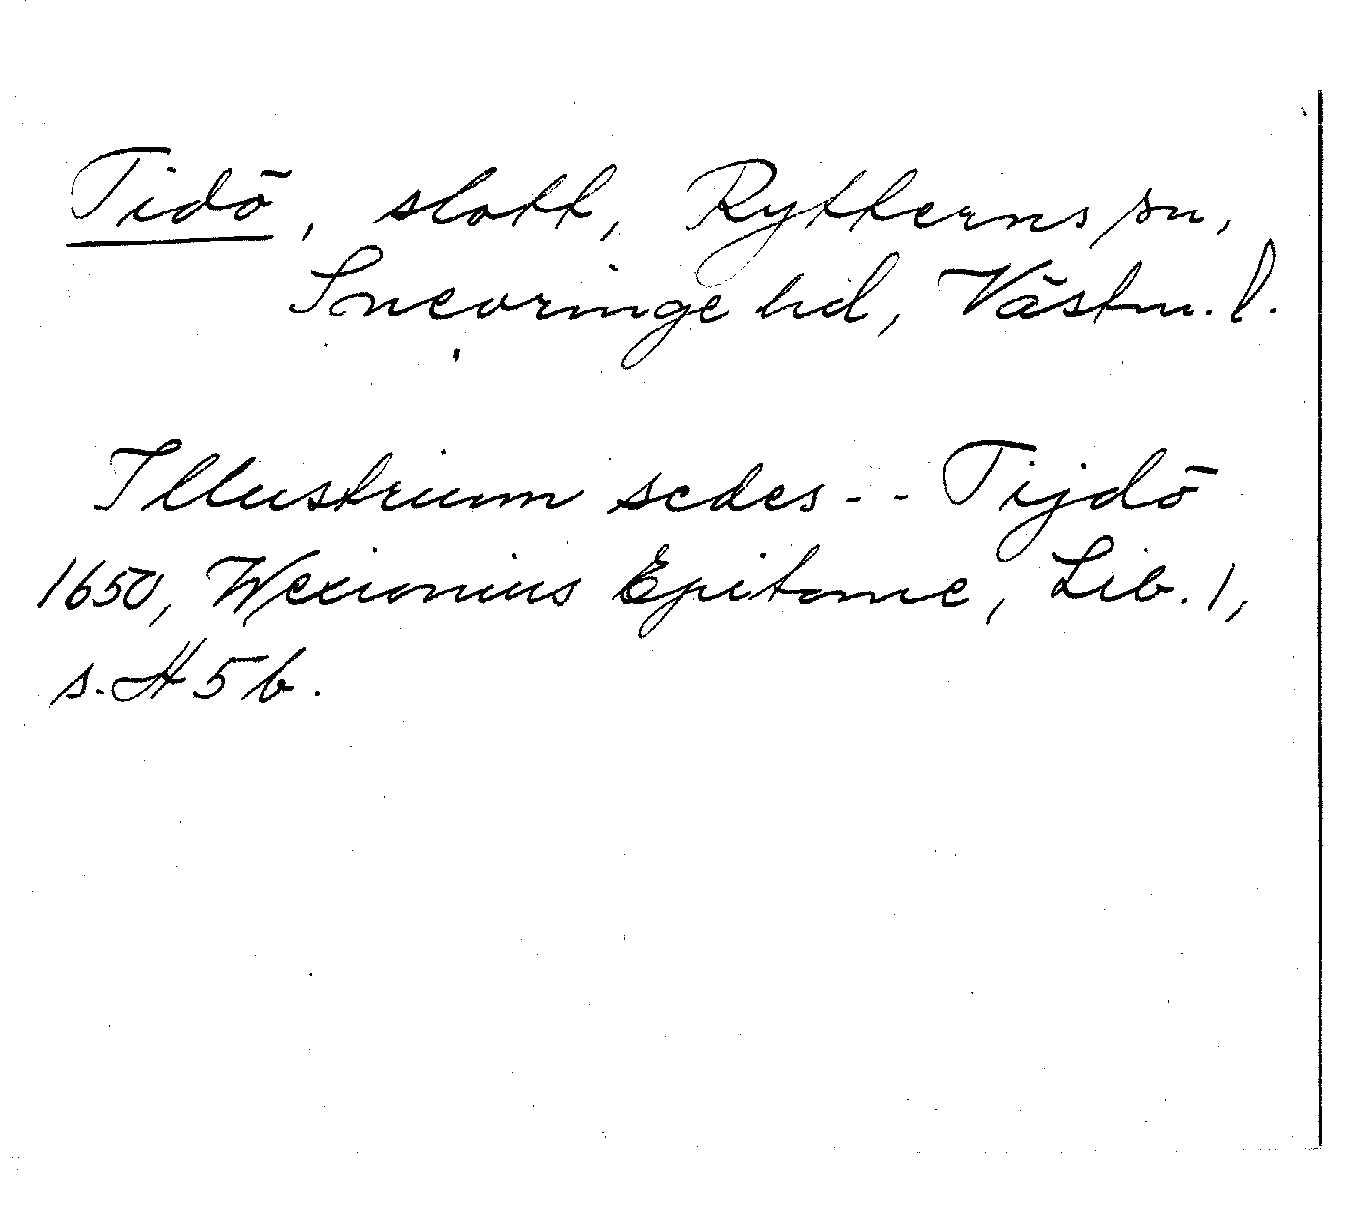 Tidö, slott, Rytterns sn,
Snevringe hd, Västm. l.
Illustrium sedes - - Tijdö
1650, Wexionius Epitome, Lib. 1,
s. H 5 b.